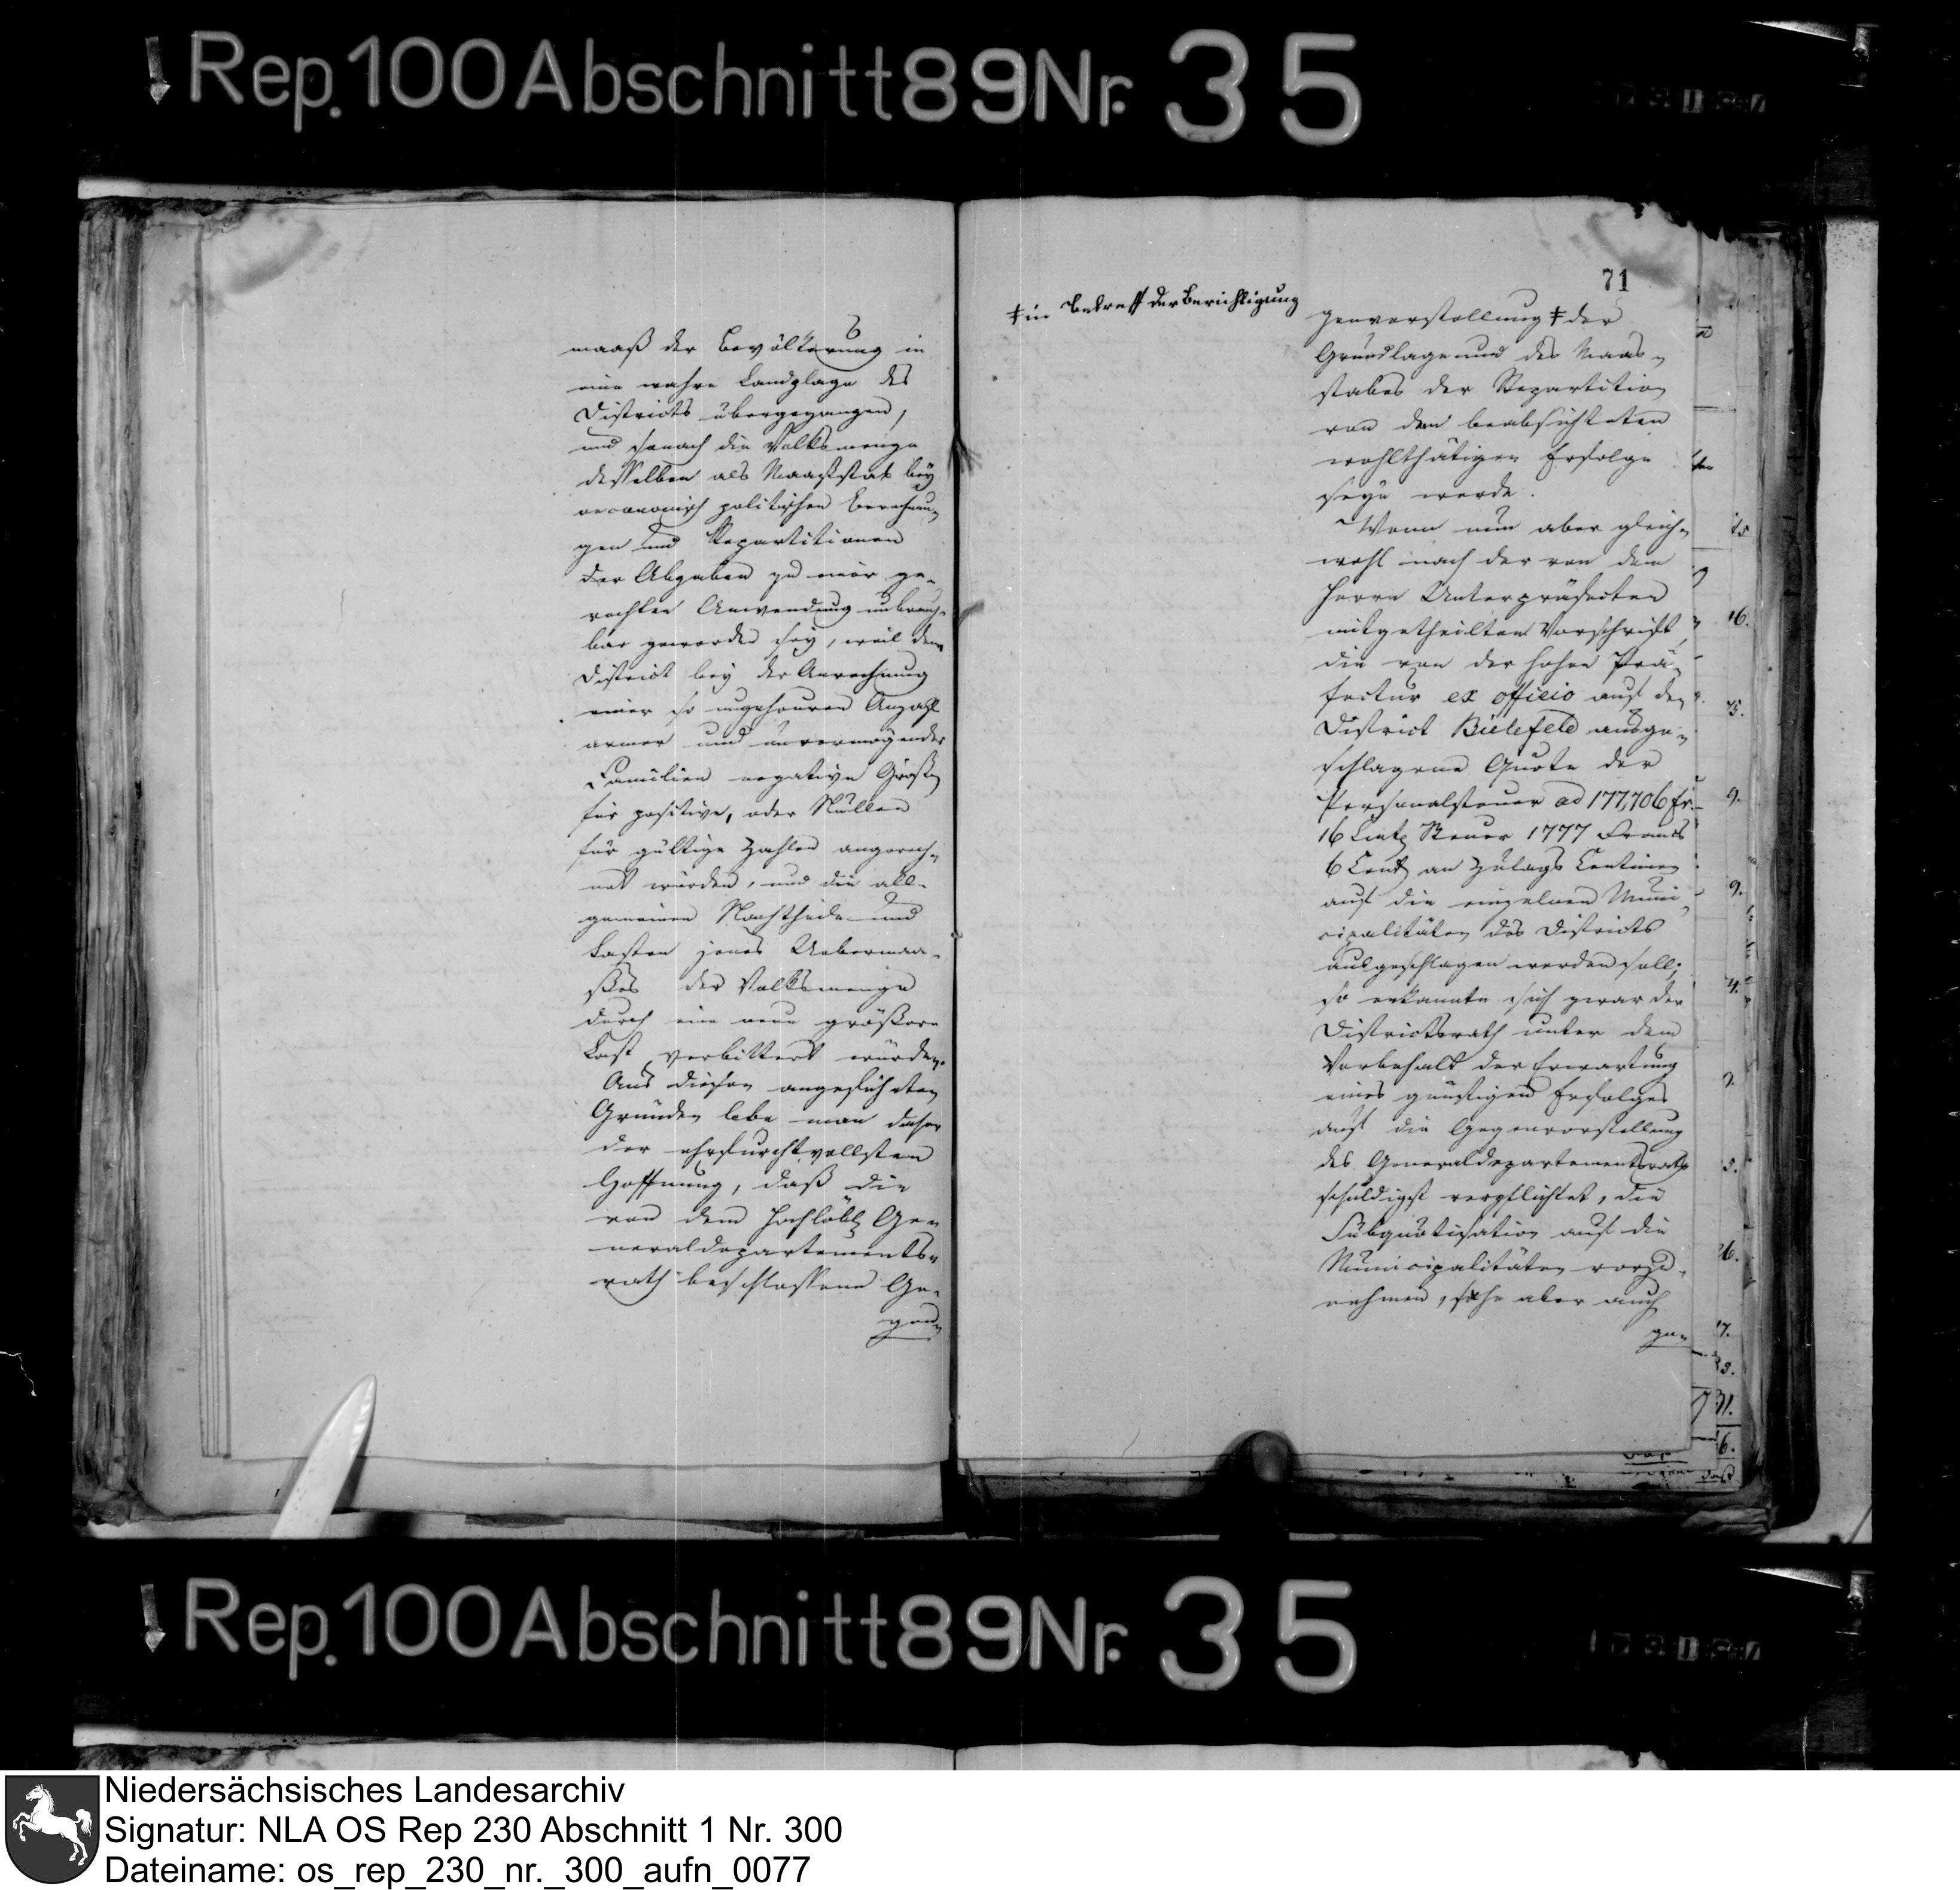 Rep. 100 Abschnitt 89 Nr. 35
maaß der Bevölkerung in
eine wahre Landplage des
Districts übergegangen,
und sonach die Volksmenge
desselben als Maaßstab bey
oeconomisch politischen Berechnun-
gen und Repartitionen
der Abgaben zu einer ge-
rechten Anwendung unbrauch-
bar geworden sey, weil dem
District bey der Anrechnung
einer so ungeheuren Anzahl
armer und unvermögender
Familien negative Größen
für positive, oder Nullen
für gültige Zahlen angerech-
net würden, und die all-
gemeinen Nachtheile und
Lasten jenes Uebermaa-
ßes der Volksmenge
durch eine neue größere
Last verbittert würden.
Aus diesen angeführten
Gründen lebe man daher
der ehrfurchtvollsten
Hoffnung, daß die
von dem hochlöbl Ge-
neraldepartements-
rath beschlossene Ge-
gen-
71
‡ in Betreff der Berichtigung
genvorstellung ‡ der
Grundlage und des Maas-
stabes der Repartition
von dem beabsichteten
wohlthätigen Erfolge
seyn werde.
Wenn nun aber gleich-
wohl nach der von dem
Herrn Unterpräfecten
mitgetheilten Vorschrift,
die von der hohen Prä-
fectur ex officio auf den
District Bielefeld ausge-
schlagene Quote der
Personalsteuer ad 177,706 fr.
16 Cent Steuer 1777 Francs
6 Cent an Zulags Centimen
auf die einzelnen Muni-
cipalitäten des Districts
ausgeschlagen werden soll;
so erkannte sich zwar der
Districtsrath unter dem
Vorbehalt der Erwartung
eines günstigen Erfolges
auf die Gegenvorstellung
des Generaldepartementsraths
schuldigst verpflichtet, die
Subquotisation auf die
Municipalitäten vorzu-
nehmen, sehe aber auch
ge-
Rep. 100 Abschnitt 89 Nr. 35
Niedersächsisches Landesarchiv
Signatur: NLA OS Rep 230 Abschnitt 1 Nr. 300
Dateiname: os_rep_230_nr._300_aufn_0077